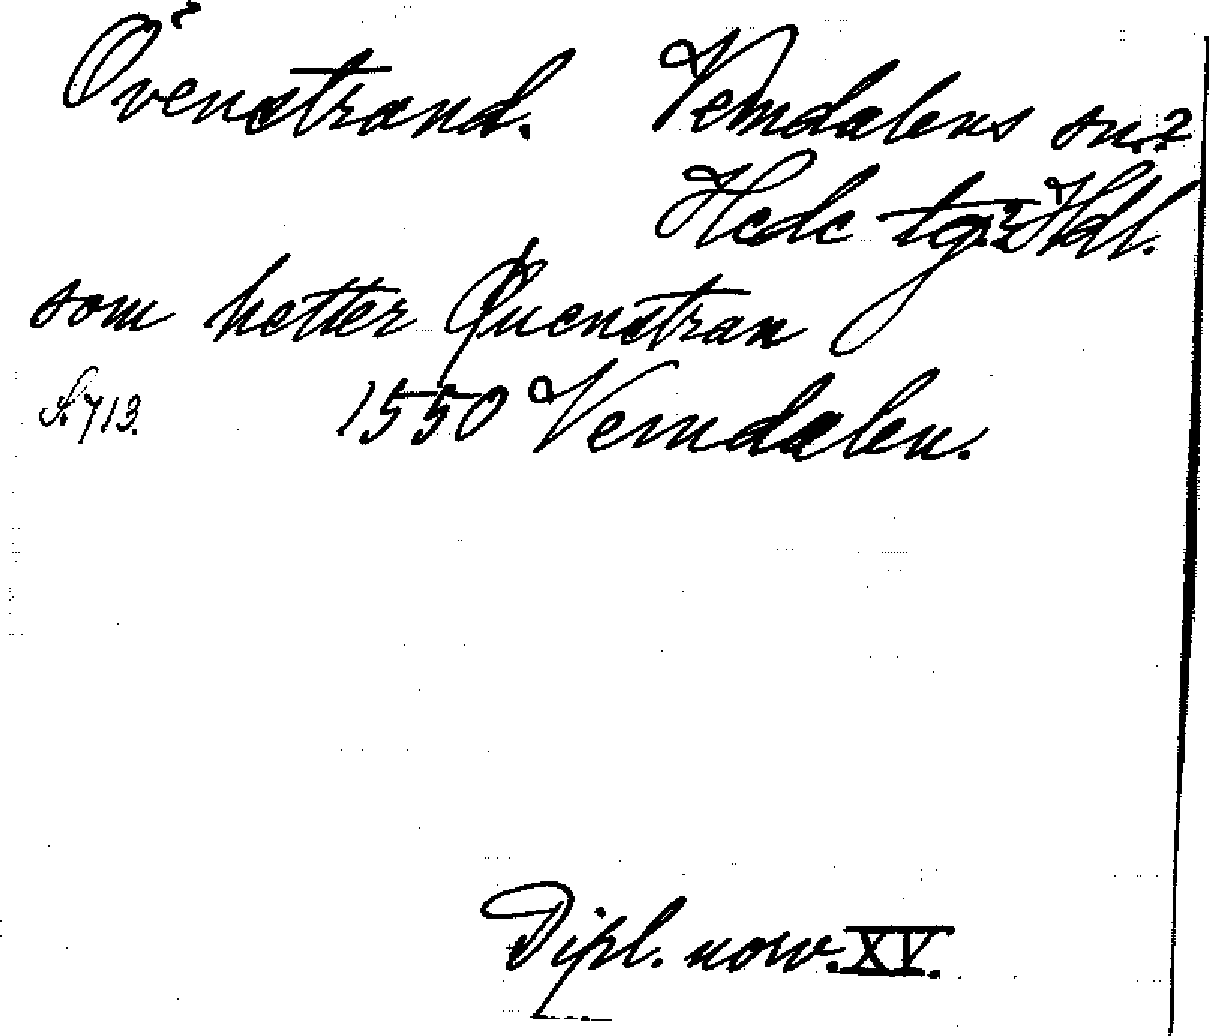 Övenstrand. Vemdalens sn.?
Hede tg.? Hdl.
som hetter Øuenstran
S. 713. 1550 Vemdalen.
Dipl. norv. XV.